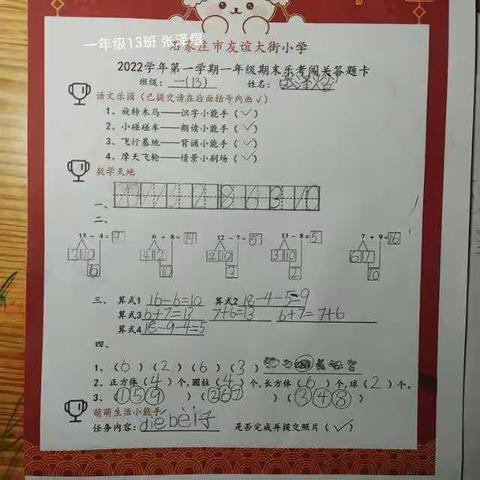 一年级13班 张泽熠
石家庄市友谊大街小学
2022学年第一学期一年级期末乐考闯关答题卡
班级：一(13) 姓名：
语文乐园（已提交请在后面括号内画√）
1、旋转木马——识字小能手（✓）
2、小碰碰车——朗读小能手（✓）
3、飞行基地——背诵小能手（✓）
4、摩天飞轮——情景小剧场（✓）
数学天地
一、
二、
13 - 4 = 9 6 + 8 = 14 12 - 7 = 5 13 - 8 = 5 7 + 9 = 16
3 10 4 2 2 10 3 10 6 7
6 10 3 2 10
三、算式1 16-6=10 算式2 18-4-5=9
算式3 6+7=13 7+6=13 6+7=7+6
算式4 18-9-4=5
四、
1、（6）（2）（6）（3）
2、正方体（4）个,圆柱（4）个,长方体（6）个,球（2）个。
3、（①⑤⑨）（②⑥⑦）（③④⑧）
萌萌生活小能手
任务内容：dié bèi 子 是否完成并提交照片（✓）